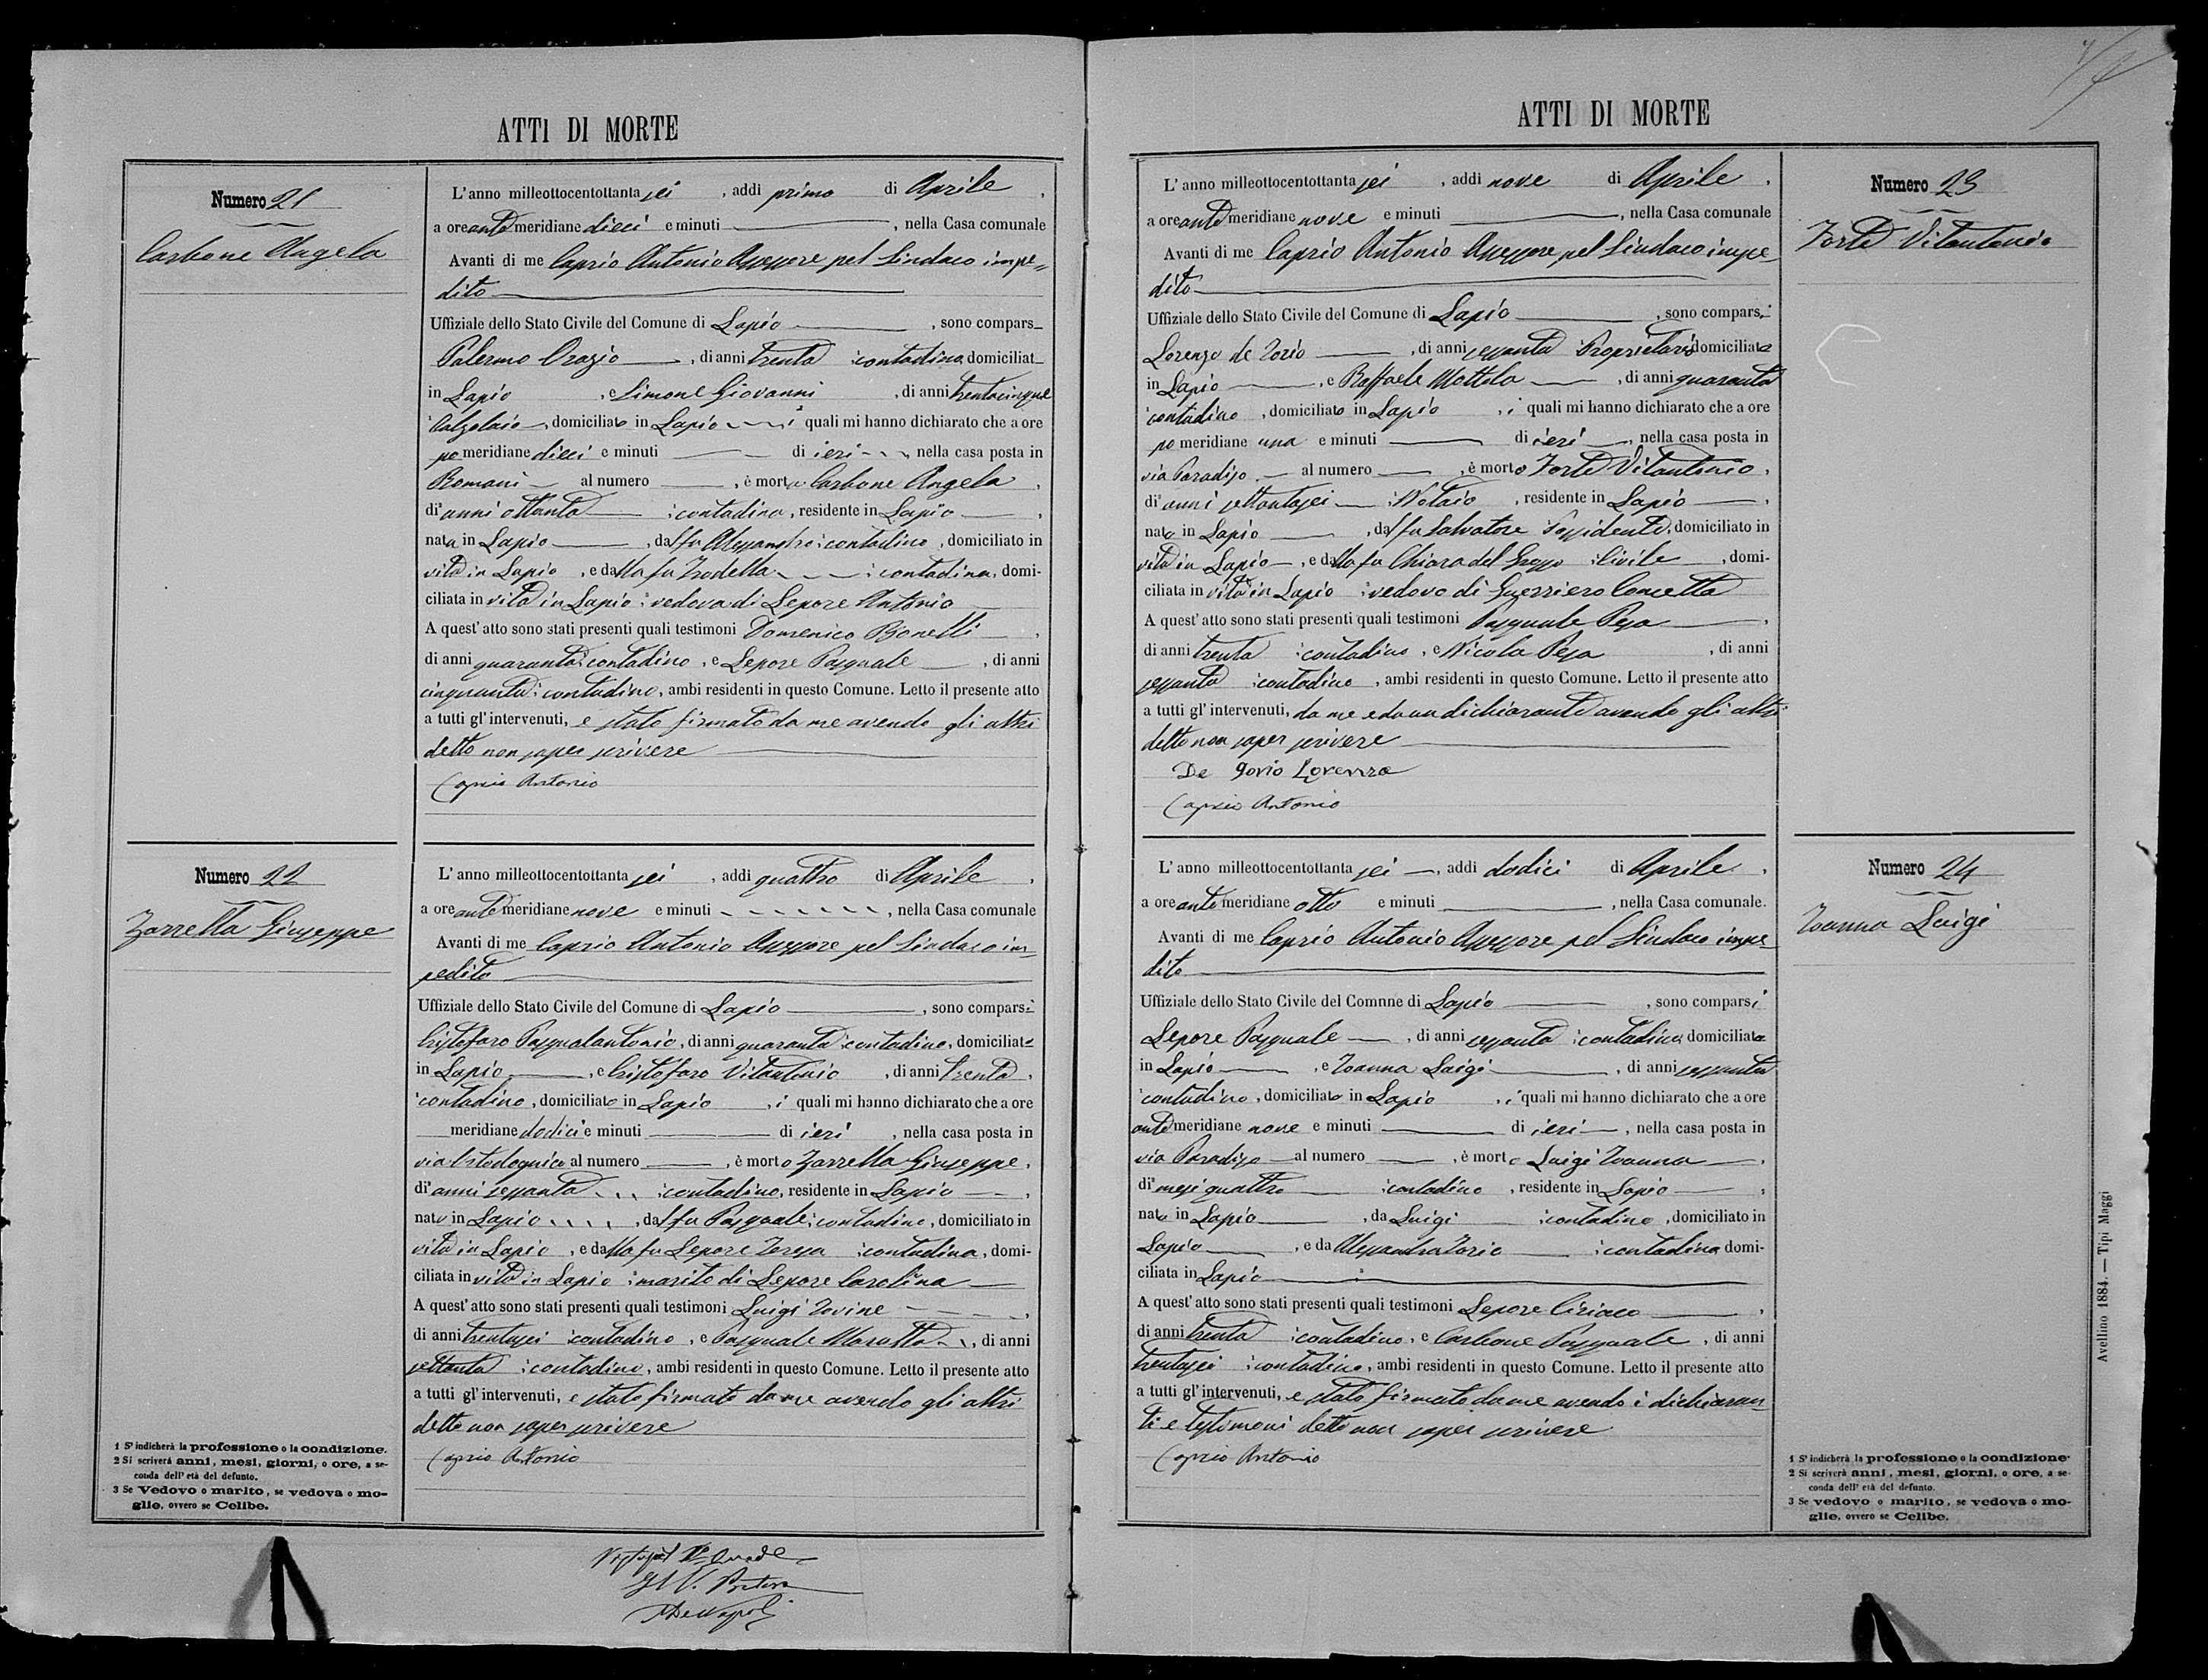 ATTI DI MORTE
Numero 21
Carbone Angela
L'anno milleottocentottanta sei, addi primo di Aprile,
a ore ante meridiane dieci e minuti, nella Casa comunale
Avanti di me Caprio Antonio Assessore pel Sindaco impe-
dito
Uffiziale dello Stato Civile del Comune di Lapio, sono compars
Palermo Orazio, di anni trenta contadino domiciliat
in Lapio, e Simone Giovanni, di anni trentacinque
Calzolaio, domiciliato in Lapio i quali mi hanno dichiarato che a ore
po meridiane dieci e minuti di ieri, nella casa posta in
Romani al numero, è morta Carbone Angela,
di anni ottanta contadina, residente in Lapio,
nata in Lapio, dal fu Alessandro contadino, domiciliato in
vita in Lapio, e dalla fu Irodella contadina, domi-
ciliata in vita in Lapio vedova di Lepore Antonio
A quest' atto sono stati presenti quali testimoni Domenico Bonelli,
di anni quaranta contadino, e Lepore Pasquale, di anni
cinquanta contadino, ambi residenti in questo Comune. Letto il presente atto
a tutti gl' intervenuti, e stato firmato da me avendo gli altri
detto non saper scrivere
Caprio Antonio
Numero 22
Zarrella Giuseppe
L' anno milleottocentottanta sei, addi quattro di Aprile,
a ore ante meridiane nove e minuti, nella Casa comunale
Avanti di me Caprio Antonio Assessore pel Sindaco im-
pedito
Uffiziale dello Stato Civile del Comune di Lapio, sono comparsi
Cristofaro Pasqualantonio, di anni quaranta contadino, domiciliato
in Lapio, e Cristofaro Vitantonio, di anni trenta,
contadino, domiciliato in Lapio, i quali mi hanno dichiarato che a ore
meridiane dodici e minuti di ieri, nella casa posta in
via al numero, è morto Zarrella Giuseppe,
di anni sessanta contadino, residente in Lapio,
nato in Lapio, dal fu Pasquale contadino, domiciliato in
vita in Lapio, e dalla fu Lepore Teresa contadina, domi-
ciliata in vita in Lapio marito di Lepore Carolina
A quest' atto sono stati presenti quali testimoni Luigi Iovine,
di anni trentasei contadino, e Pasquale Marotta, di anni
settanta contadino, ambi residenti in questo Comune. Letto il presente atto
a tutti gl' intervenuti, e stato firmato da me avendo gli altri
detto non saper scrivere
Caprio Antonio
1 S' indicherà la professione o la condizione.
2 Si scriverà anni, mesi, giorni, o ore, a se-
conda dell' età del defunto.
3 Se Vedovo o marito, se vedova o mo-
glie, ovvero se Celibe.
ATTI DI MORTE
Numero 23
Forte Vitantonio
L' anno milleottocentottanta sei, addi nove di Aprile,
a ore ante meridiane nove e minuti, nella Casa comunale
Avanti di me Caprio Antonio Assessore pel Sindaco impe-
dito
Uffiziale dello Stato Civile del Comune di Lapio, sono comparsi
Lorenzo de Iorio, di anni sessanta Proprietario domiciliato
in Lapio, e Raffaele Mottola, di anni quaranta
contadino, domiciliato in Lapio, i quali mi hanno dichiarato che a ore
po meridiane una e minuti di ieri, nella casa posta in
via Paradiso al numero, è morto Forte Vitantonio,
di anni settantasei Notaio, residente in Lapio,
nato in Lapio, dal fu Salvatore Possidente, domiciliato in
vita in Lapio, e dalla fu Chiara del Grosso Civile, domi-
ciliata in vita in Lapio vedovo di Guerriero Concetta
A quest' atto sono stati presenti quali testimoni Pasquale Pesa,
di anni trenta contadino, e Nicola Pesa, di anni
sessanta contadino, ambi residenti in questo Comune. Letto il presente atto
a tutti gl' intervenuti, da me e da un dichiarante avendo gli altri
detto non saper scrivere
De Iorio Lorenzo
Caprio Antonio
Numero 24
Ioanna Luigi
L' anno milleottocentottanta sei, addi dodici di Aprile,
a ore ante meridiane otto e minuti, nella Casa comunale.
Avanti di me Caprio Antonio Assessore pel Sindaco impe-
dito
Uffiziale dello Stato Civile del Comnne di Lapio, sono comparsi
Lepore Pasquale, di anni sessanta contadino domiciliato
in Lapio, e Ioanna Luigi, di anni sessanta
contadino, domiciliato in Lapio, i quali mi hanno dichiarato che a ore
ante meridiane nove e minuti di ieri, nella casa posta in
via Paradiso al numero, è morto Luigi Ioanna,
di mesi quattro contadino, residente in Lapio,
nato in Lapio, da Luigi contadino, domiciliato in
Lapio, e da Alessandra Iorio contadina domi-
ciliata in Lapio
A quest' atto sono stati presenti quali testimoni Lepore Ciriaco,
di anni trenta contadino, e Carbone Pasquale, di anni
trentasei contadino, ambi residenti in questo Comune. Letto il presente atto
a tutti gl' intervenuti, e stato firmato da me avendo i dichiaran-
ti e testimoni detto non saper scrivere
Caprio Antonio
1 S' indicherà la professione o la condizione.
2 Si scriverà anni, mesi, giorni, o ore, a se-
conda dell' età del defunto.
3 Se vedovo o marito, se vedova o mo-
glie, ovvero se Celibe.
Avellino 1884. — Tipi Maggi